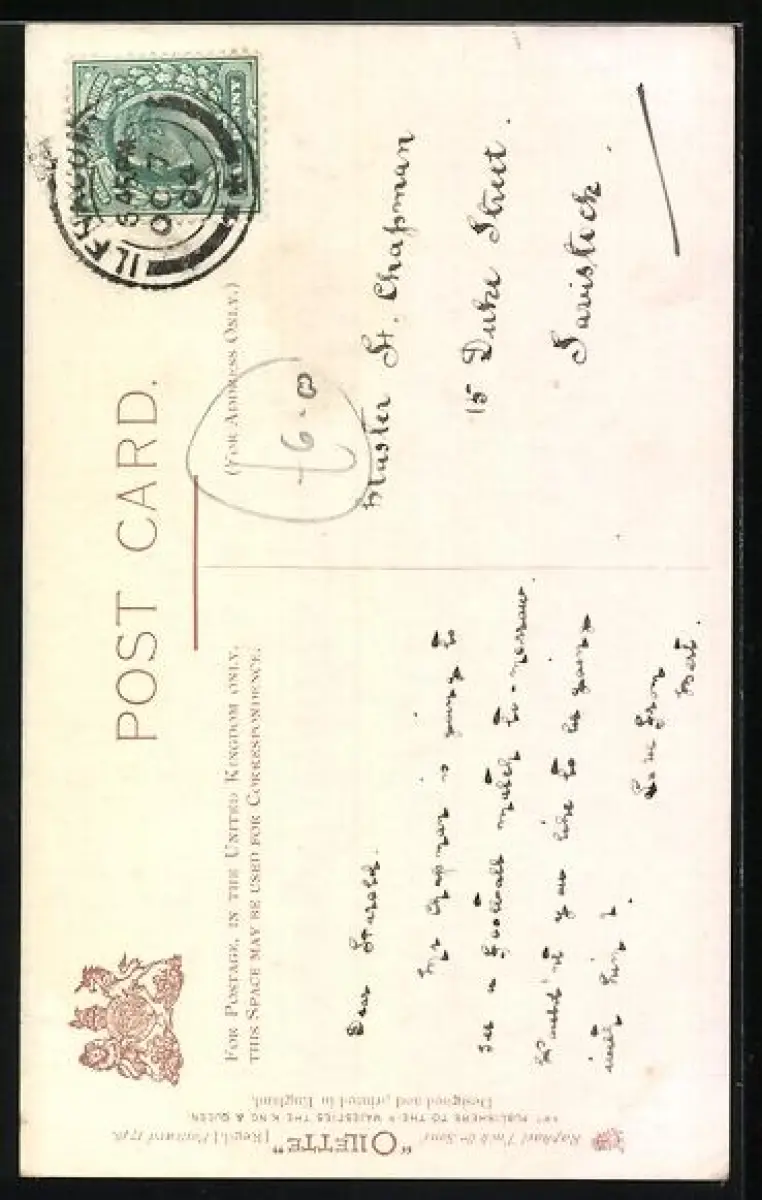 POST CARD.
FOR POSTAGE, IN THE UNITED KINGDOM ONLY,
THIS SPACE MAY BE USED FOR CORRESPONDENCE.
(FOR ADDRESS ONLY.)
ILFRACOM
5 45 PM
OC 7
04
PENNY
£6-0
Dear Harold.
Mr Chapman is going to
see a football match to-morrow.
Wouldn't you like to be going
with him?
Love from
Bert.
Master H. Chapman
15 Duke Street.
Tavistock.
Raphael Tuck & Sons' "OILETTE" [Regd.] Postcard
ART PUBLISHERS TO THEIR MAJESTIES THE KING & QUEEN
Designed and printed in England.